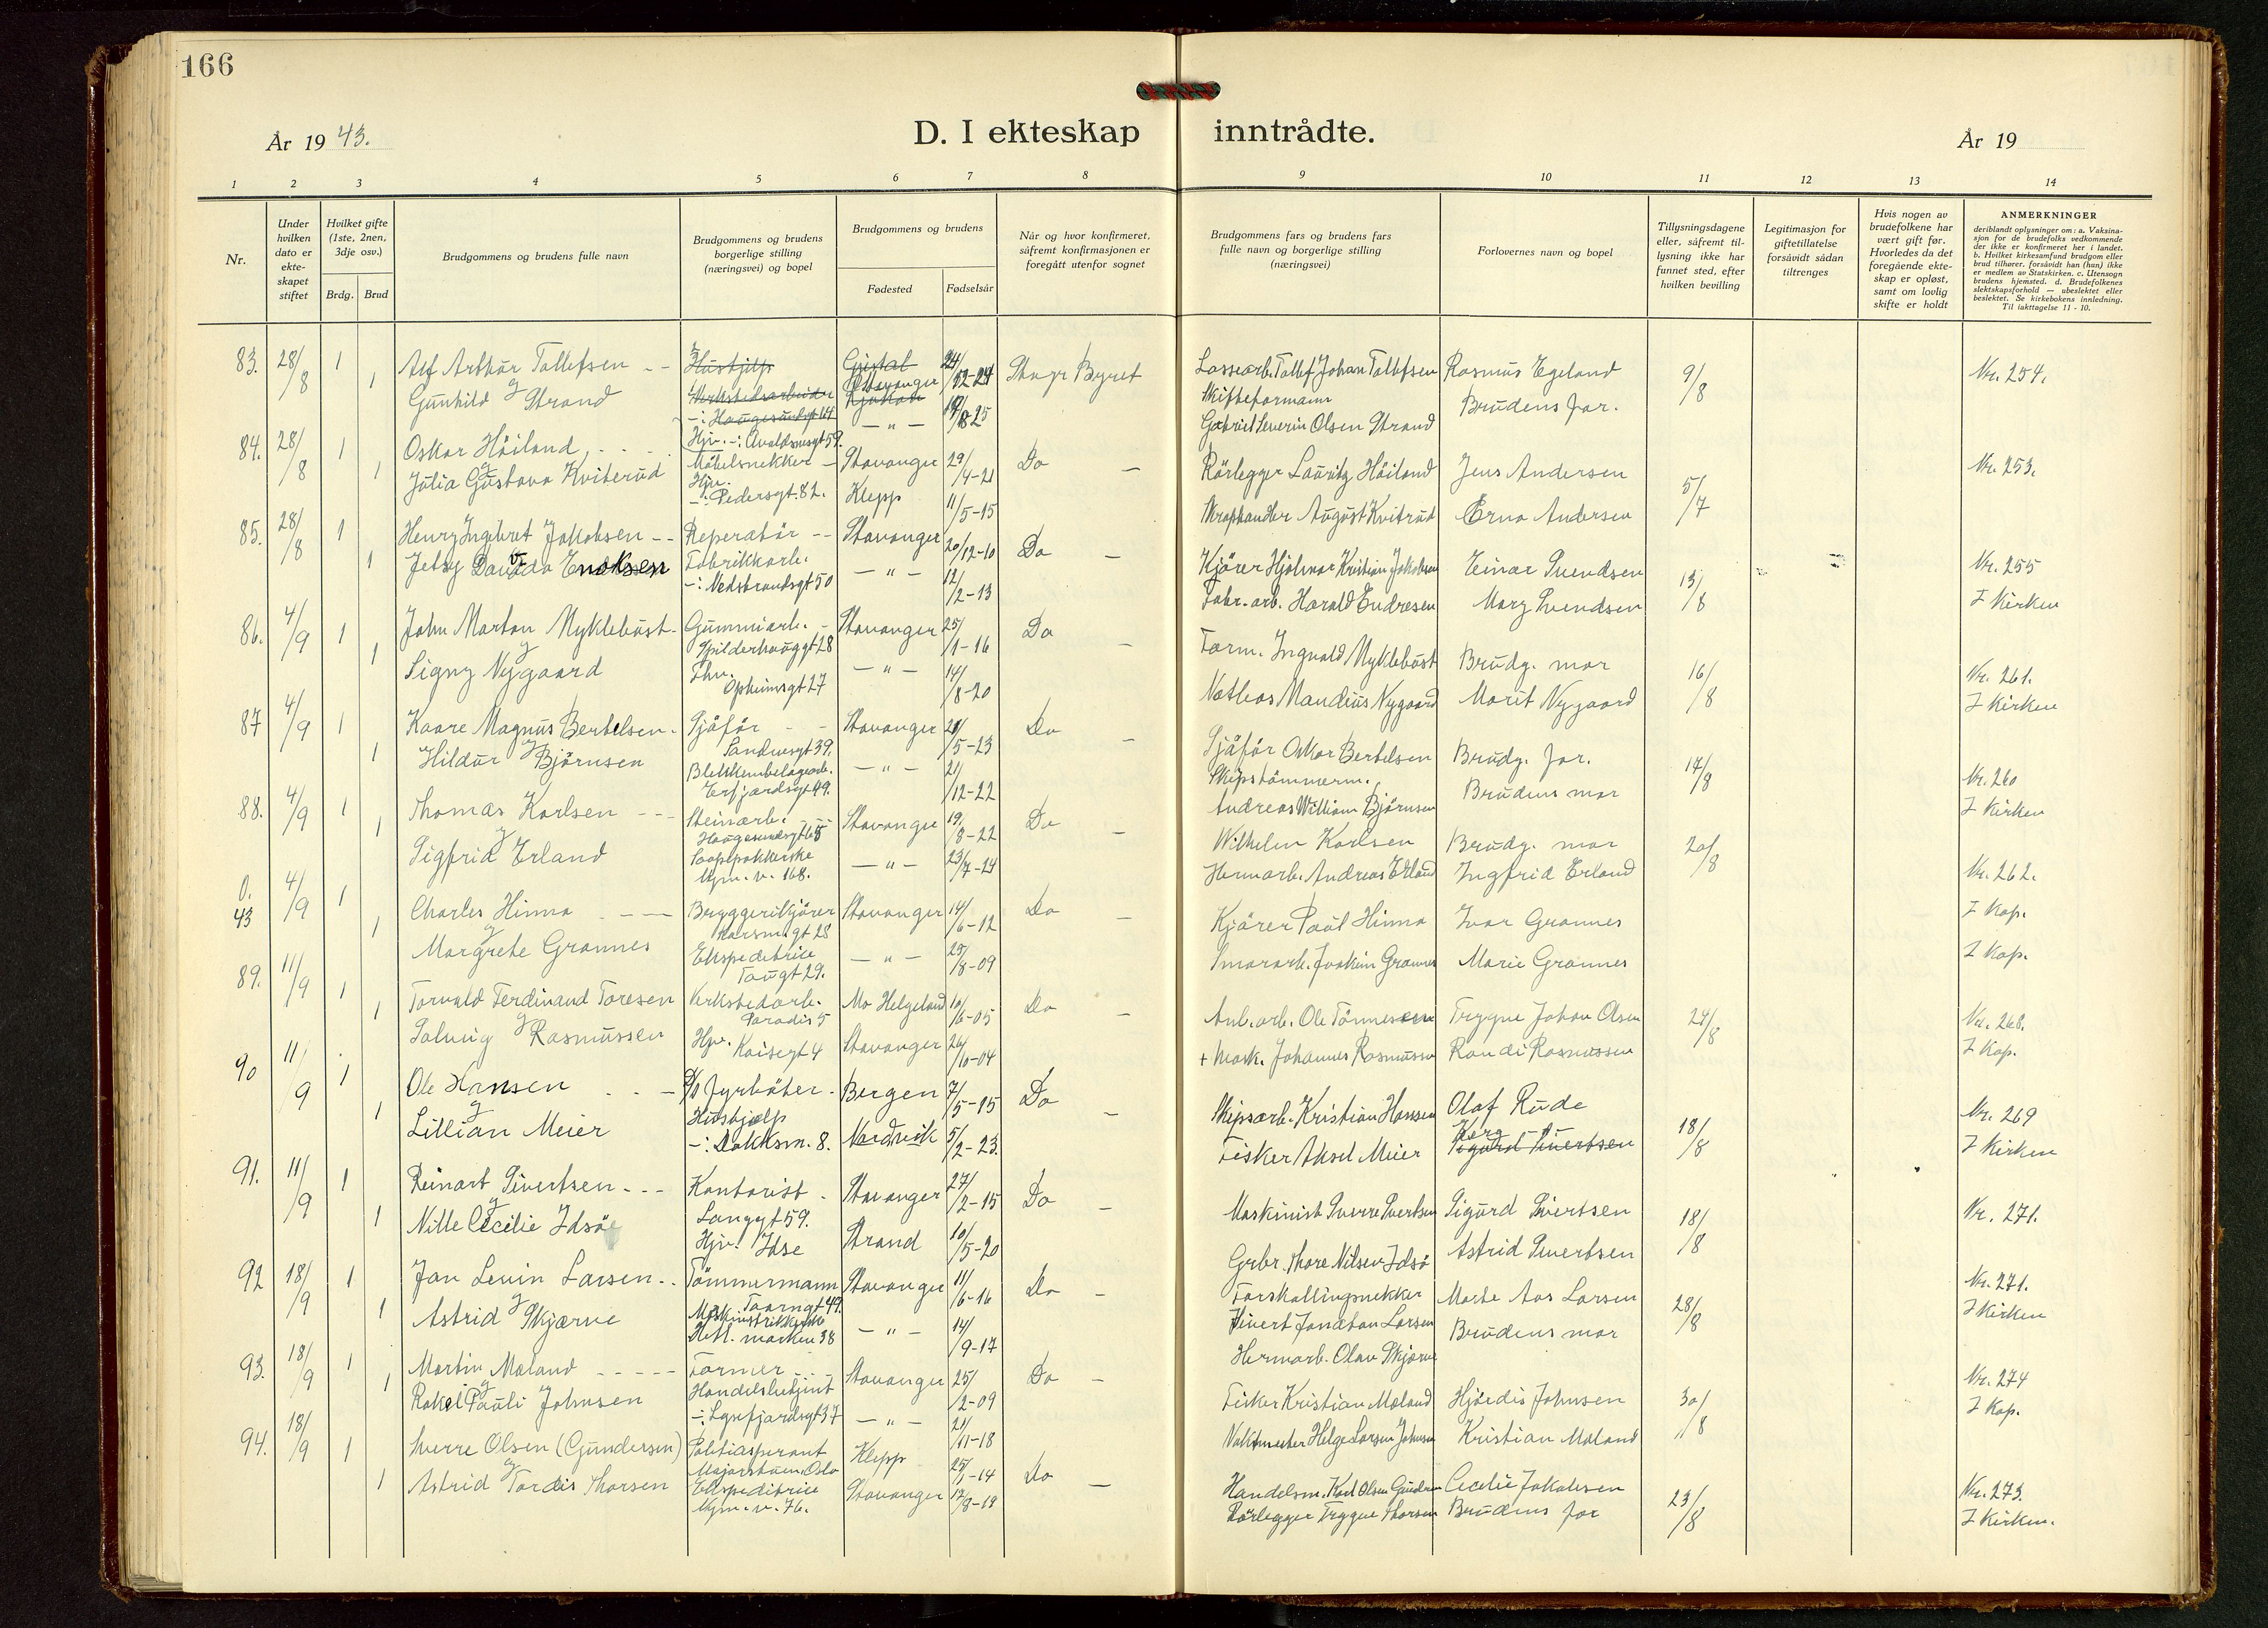 166
År 1943.
D. I ekteskap inntrådte.
År 19
1 2 3 4 5 6 7 8 9 10 11 12 13 14
Nr.
Under hvilken dato er ekteskapet stiftet
Hvilket gifte (1ste, 2nen, 3dje osv.)
Brdg. Brud
Brudgommens og brudens fulle navn
Brudgommens og brudens borgerlige stilling (næringsvei) og bopel
Brudgommens og brudens
Fødested
Fødselsår
Når og hvor konfirmeret, såfremt konfirmasjonen er foregått utenfor sognet
Brudgommens fars og brudens fars fulle navn og borgerlige stilling (næringsvei)
Forlovernes navn og bopel
Tillysningsdagene eller, såfremt tillysning ikke har funnet sted, efter hvilken bevilling
Legitimasjon for giftetillatelse forsåvidt sådan tiltrenges
Hvis nogen av brudefolkene har vært gift før. Hvorledes da det foregående ekteskap er opløst, samt om lovlig skifte er holdt
ANMERKNINGER
deriblandt oplysninger om: a. Vaksinasjon for de brudefolks vedkommende der ikke er konfirmeret her i landet. b. Hvilket kirkesamfund brudgom eller brud tilhører, forsåvidt han (hun) ikke er medlem av Statskirken. c. Utensogn brudens hjemsted. d. Brudefolkenes slektskapsforhold — ubeslektet eller beslektet. Se kirkebokens innledning. Til iakttagelse 11 - 10.
83. 28/8 1 Alf Arthur Tollefsen -- Stavanger 24/12-24 Byret Tollef Johan Tollefsen Rasmus Egeland 9/8 Nr. 254.
1 Gunhild g Strand Hjv. -: Avaldsnesgt 59. — " — Skifteformann Gabriel Severin Olsen Strand Brudens far.
84. 28/8 1 Oskar Höiland Möbelsnekker - Stavanger 29/4-21 Do — Rörlegger Lauritz Höiland Jens Andersen 5/7 Nr. 253.
1 Julia Gustava Kviterud Hjv. -: Pedersgt. 82. Klepp 11/5-15 Skraphandler August Kvitrud Erna Andersen
85. 28/8 1 Henry Ingebret Jakobsen -- Reperatör -- Stavanger 20/12-10 Do — Kjörer Hjalmar Kristian Jakobsen Einar Svendsen 13/8 Nr. 255
1 Jetsy Fabrikkarb. -: Nedstrandsgt 50 — " — 12/2-13 Fabr. arb. Harald Endresen Mary Svendsen I Kirken
86. 4/9 1 John Marton Myklebust - Gummiarb. - Spilderhauggt 28 Stavanger 25/1-16 Do — Form. Ingvald Myklebust Brudg. mor 16/8 Nr. 261.
1 Signy g Nygaard Opheimsgt 27 — " — 14/8-20 Mandius Nygaard Marit Nygaard I Kirken
87 4/9 1 Kaare Magnus Bertelsen - Sjåför - - Sandnesgt 39. Stavanger 5-23 Do — Sjåför Oskar Bertelsen Brudg. far. 17/8 Nr. 260
1 Hildur g Björnsen Erfjordsgt 49. — " — 21/12-22 Skipstömmerm. Andreas William Björnsen Brudens mor I Kirken
88. 4/9 1 Thomas Karlsen --- Steinarb. Haugesundsgt 68 Stavanger 19/8-22 Do — Wilhelm Karlsen Brudg. mor 20/8 Nr. 262.
1 Sigfrid g Erland v. 168. — " — 23/7-24 Hermarb. Andreas Erland Ingfrid Erland I Kap.
0. 43 4/9 1 Charles Hinna --- Bryggerikjörer Stavanger 14/6-12 Do — Kjörer Paul Hinna Ivar Grannes
1 Margrete g Grannes Ekspeditrise Taugt 29. — " — 29/8-09 Joakim Grannes Marie Grannes I Kap.
89. 11/9 1 Torvald Ferdinand Toresen Verkstedarb. Paradis 5 Mo Helgeland 10/6-05 Do — Anl. arb. Ole Tönnesen Trygve Johan Olsen 24/8 Nr. 268.
1 Solveig g Rasmussen Hjv. Kaisegt 4 Stavanger 26/10-04 + Mask. Johannes Rasmussen Randi Rasmussen I Kap.
90 11/9 1 Ole Hansen - - - Fyrböter - Bergen 7/5-15 Do — Skipsarb. Kristian Hansen Olaf Rude 18/8 Nr. 269
1 Lillian g Meier Hushjelp -: Dokksm. 8. Nordvik 5/2-23. Fisker Aksel Meier Sigurd Sivertsen I Kirken
91. 11/9 1 Reinart Sivertsen --- Kontorist - Langgt 59. Stavanger 27/2-15 Do — Maskinist Sverre Sivertsen Sigurd Sivertsen 18/8 Nr. 271.
1 Nille g Cecilie Idsöe Hjv. Idse Strand 10/5-20 Grbr. Thore Nilsen Idsö Astrid Sivertsen
92 18/9 1 Jan Levin Larsen -- Tömmermann Taarngt 49. Stavanger 11/6-16 Do — Forskallingsnekker Sivert Jonatan Larsen Marte Aas Larsen 28/8 Nr. 271.
1 Astrid g Skjærve marken 38 — " — 14/9-17 Hermarb. Olav Skjærve Brudens mor I Kirken
93. 18/9 1 Martin Maland ----- Former ---- Stavanger 25/2-09 Do — Fisker Kristian Maland Hjördis Johnsen 30/8 Nr. 274
1 Rakel g Pauli Johnsen Handelsbetjent -: Lysefjordsgt 37 — " — 11-18 Vaktmester Helge Larsen Johnsen Kristian Maland I Kap.
94. 18/9 1 Sverre Olsen (Gundersen) Politiaspirant Majorstuen, Oslo Klepp 25/1-14 Do — Handelsm. Karl Olsen Cecilie Jakobsen 23/8 Nr. 273.
1 Astrid g Tordis Thorsen Ekspeditrise v. 76. Stavanger 17/8-19 Rörlegger Trygve Thorsen Brudens far I Kirken.